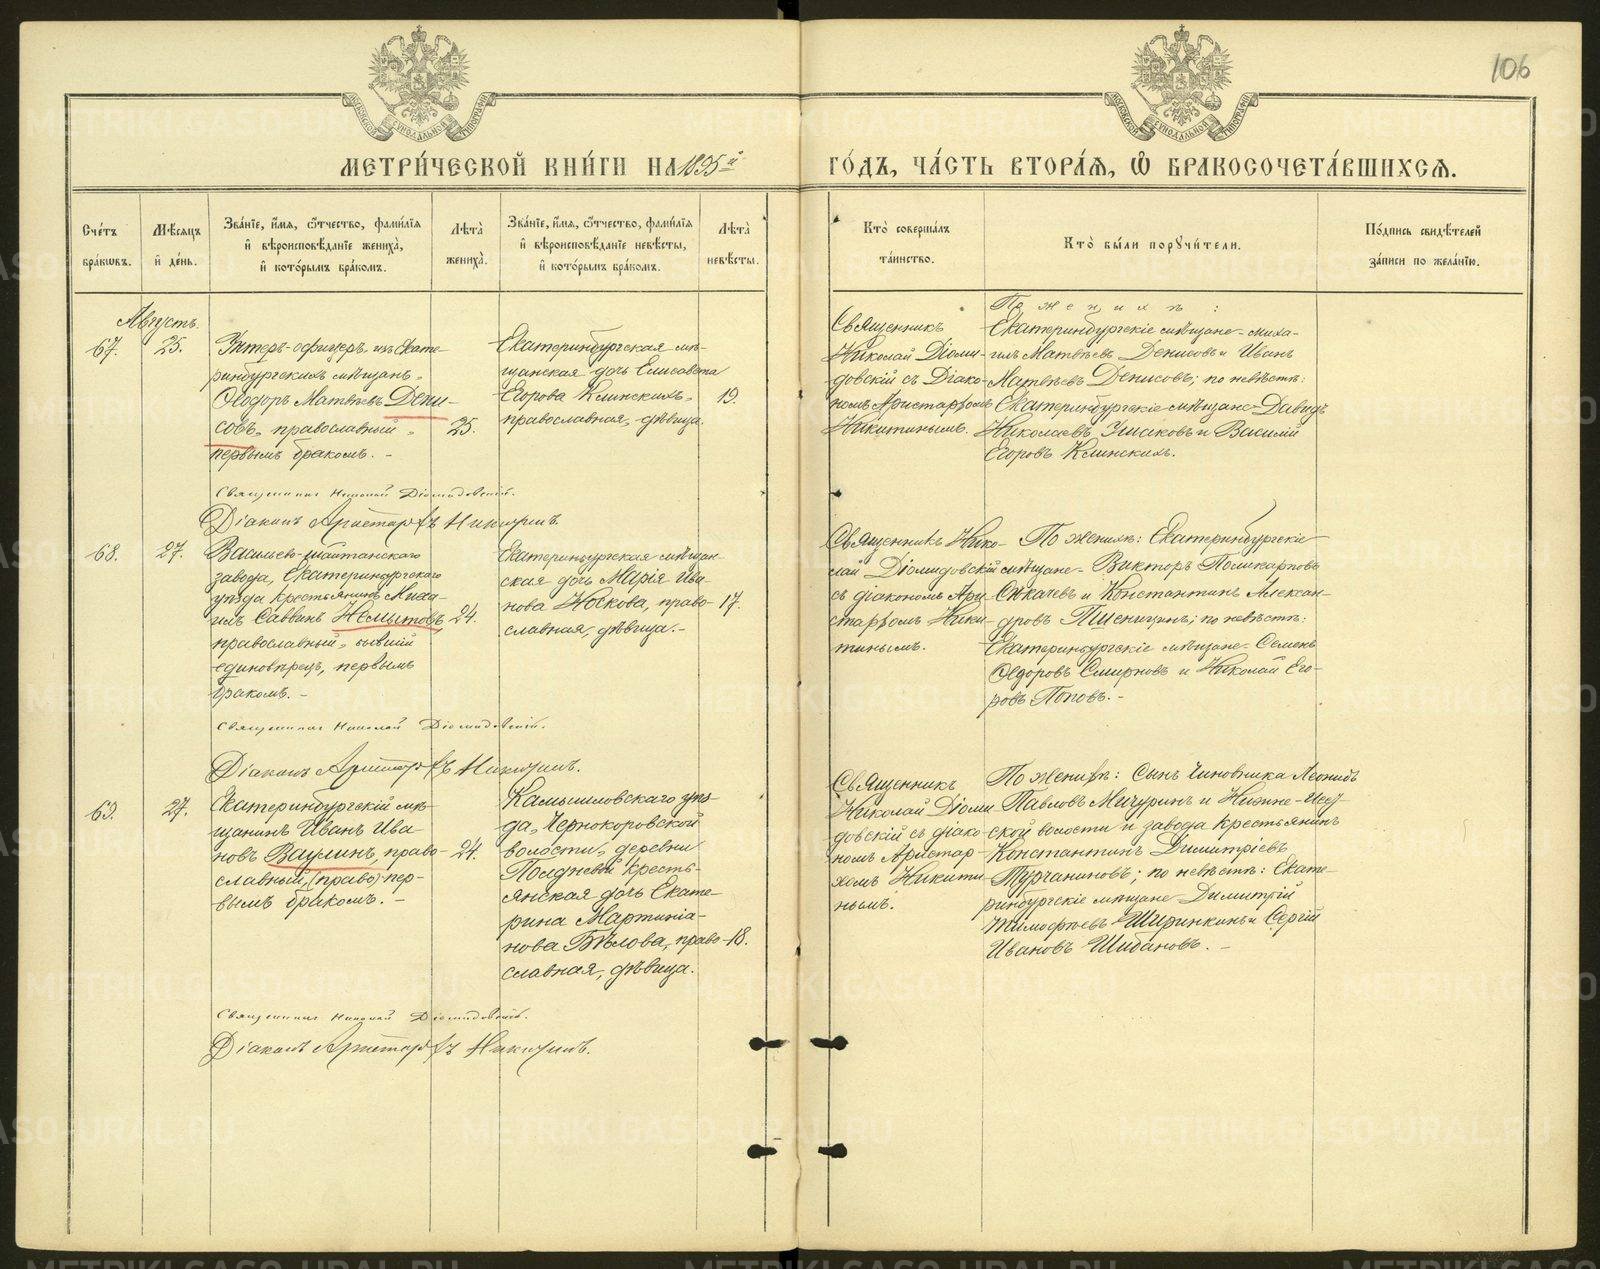 106
МОСКОВСКОЙ СѴНОДАЛЬНОЙ ТИПОГРАФІИ
МОСКОВСКОЙ СѴНОДАЛЬНОЙ ТИПОГРАФІИ
МЕТРИ́ЧЕСКОЙ КНИ́ГИ НА 1895й
ГО́ДЪ, ЧА́СТЬ ВТОРА́Ѧ, Ѽ БРАКОСОЧЕТА́ВШИХСѦ.
Сче́тъ
бра́кѡвъ.
Мѣ́сяцъ
и҆ де́нь.
Зва́нїе, и҆́мя, ѻ҆́тчество, фами́лїя
и҆ вѣроисповѣ́данїе жениха̀,
и҆ кото́рымъ бра́комъ.
Лѣта̀
жениха̀.
Зва́нїе, и҆́мя, ѻ҆́тчество, фами́лїя
и҆ вѣроисповѣ́данїе невѣ́сты,
и҆ кото́рымъ бра́комъ.
Лѣта̀
невѣ́сты.
Кто̀ соверша́лъ
та́инство.
Кто̀ бы́ли порꙋчи́тели.
По́дпись свидѣ́телей
за́писи по жела́нїю.
Августъ.
67.
25.
Унтеръ-офицеръ изъ Екате-
ринбургскихъ мѣщанъ
Ѳеодоръ Матвѣевъ Дени-
совъ, православный,
первымъ бракомъ. -
25.
Екатеринбургская мѣ-
щанская дочь Елисавета
Егорова Клинскихъ,
православная, дѣвица.
19.
Священникъ
Николай Діоми-
довскій съ Діако-
номъ Аристархомъ
Никитинымъ.
По женихѣ:
Екатеринбургскіе мѣщане- Миха-
илъ Матвѣевъ Денисовъ и Иванъ
Матвѣевъ Денисовъ; по невѣстѣ:
Екатеринбургскіе мѣщане- Давидъ
Николаевъ Ушаковъ и Василій
Егоровъ Клинскихъ.
Священникъ Николай Діомидовскій.
Діаконъ Аристархъ Никитинъ.
68.
27.
Васильево-Шайтанскаго
завода, Екатеринбургскаго
уѣзда крестьянинъ Миха-
илъ Саввинъ Немытовъ,
православный, бывшій
единовѣрецъ, первымъ
бракомъ. -
24.
Екатеринбургская мѣщан-
ская дочь Марія Ива-
нова Носкова, право-
славная, дѣвица.-
17.
Священникъ Нико-
лай Діомидовскій
съ діакономъ Ари-
стархомъ Ники-
тинымъ.
По женихѣ: Екатеринбургскіе
мѣщане- Викторъ Поликарповъ
Сѣкачевъ и Константинъ Алексан-
дровъ Пшеницинъ; по невѣстѣ:
Екатеринбургскіе мѣщане- Семенъ
Ѳедоровъ Смирновъ и Николай Его-
ровъ Поповъ. -
Священникъ Николай Діомидовскій.
Діаконъ Аристархъ Никитинъ.
69.
27.
Екатеринбургскій мѣ-
щанинъ Иванъ Ива-
новъ Ваулинъ, право-
славный, (право) пер-
вымъ бракомъ. -
24.
Камышловскаго уѣз-
да, Чернокоровской
волости, деревни
Поздневой кресть-
янская дочь Екате-
рина Мартиніа-
нова Бѣлова, право-
славная, дѣвица.
18.
Священникъ
Николай Діоми
довскій съ діако-
номъ Аристар-
хомъ Никити-
нымъ.
По женихѣ: Сынъ чиновника Леонидъ
Павловъ Мичуринъ и Нижне-Исет-
ской волости и завода крестьянинъ
Константинъ Димитріевъ
Турчаниновъ; по невѣстѣ: Екате-
ринбургскіе мѣщане- Димитрій
Тимофѣевъ Ширинкинъ и Сергій
Ивановъ Шибановъ. -
Священникъ Николай Діомидовскій.
Діаконъ Аристархъ Никитинъ.
METRIKI.GASO-URAL.RU